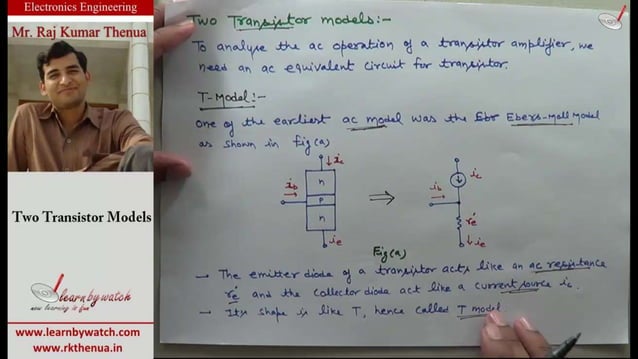 Electronics Engineering
Mr. Raj Kumar Thenua
Two Transistor Models
learnbywatch
now learning is fun
www.learnbywatch.com
www.rkthenua.in
Two Transistor models:-
To analyse the ac operation of a transistor amplifier, we
need an ac equivalent circuit for transistor.
T-Model:-
One of the earliest ac model was the Ebers-Moll Model
as shown in fig(a)
ic
ib
n
p
n
ie
ib
ic
re'
ie
Fig(a)
→ The emitter diode of a transistor acts like an ac resistance
re' and the collector diode act like a current source ic.
→ Its shape is like T, hence called T model.